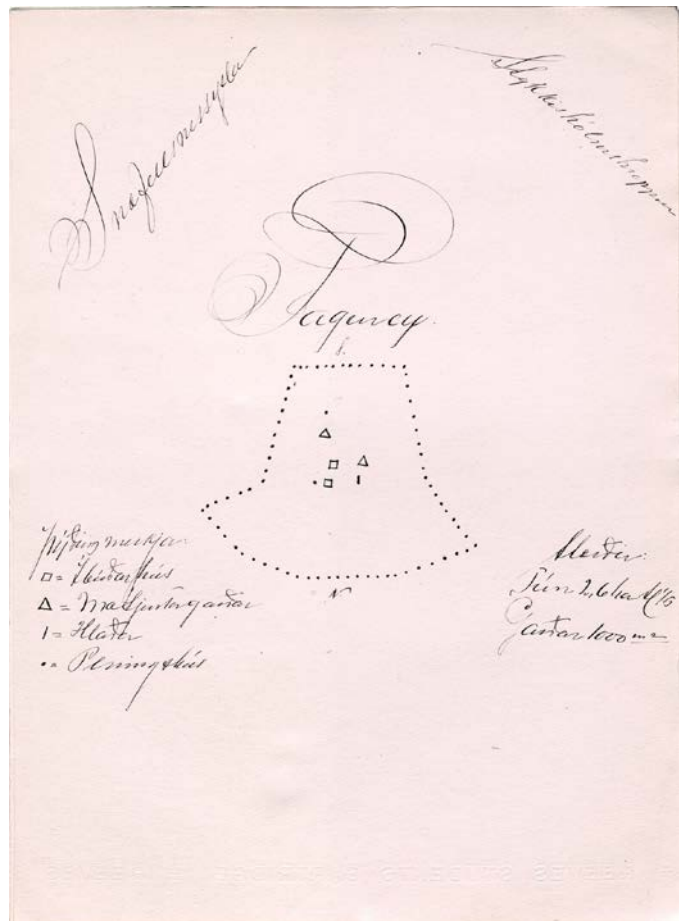 Snæfellsnessysla
Stykkishólmshreppur
Fagurey.
S.
N
Þýding merkja
□ = Íbúðarhús
Δ = Matjurtagarðar
I = Hlaða
• = Peningshús
Stærðir:
Tún 2,6 ha
Garðar 1000 m²